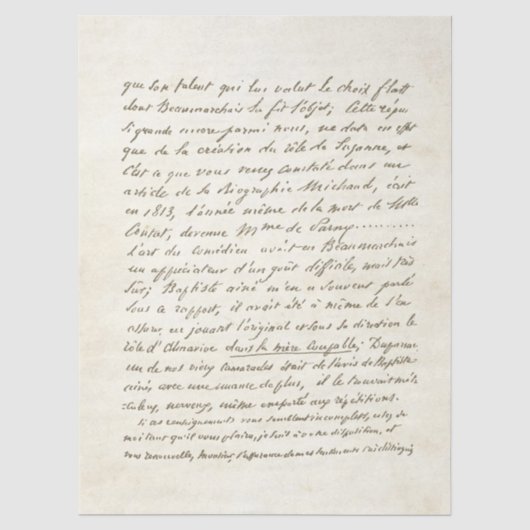 que son talent qui lui valut le choix flatt
dont Beaumarchais la fit l'objet; Cette répu
si grande encore parmi nous, ne date en effet
que de la création du rôle de Suzanne, et
c'est ce que vous verrez constaté dans un
article de la Biographie Michaud, écrit
en 1813, l'année même de la mort de Mlle
Contat, devenue Mme de Parny..........
l'art du comédien avait en Beaumarchais
un appréciateur d'un goût difficile, mais très
sûr; Baptiste ainé m'en a souvent parlé
sous ce rapport, il avait été à même de s'en
assurer en jouant l'original et sous sa direction le
rôle d'Almaviva dans la mère Coupable;
un de nos vieux camarades était de l'avis de Baptiste
ainé, avec une nuance de plus, il le trouvait méti-
culeux, nerveux, même emporté aux répétitions.
si ces renseignements vous semblent incomplets, usez de
moi tant qu'il vous plaira, je suis à votre disposition, et
vous renouvelle, Monsieur, l'assurance de mes sentiments